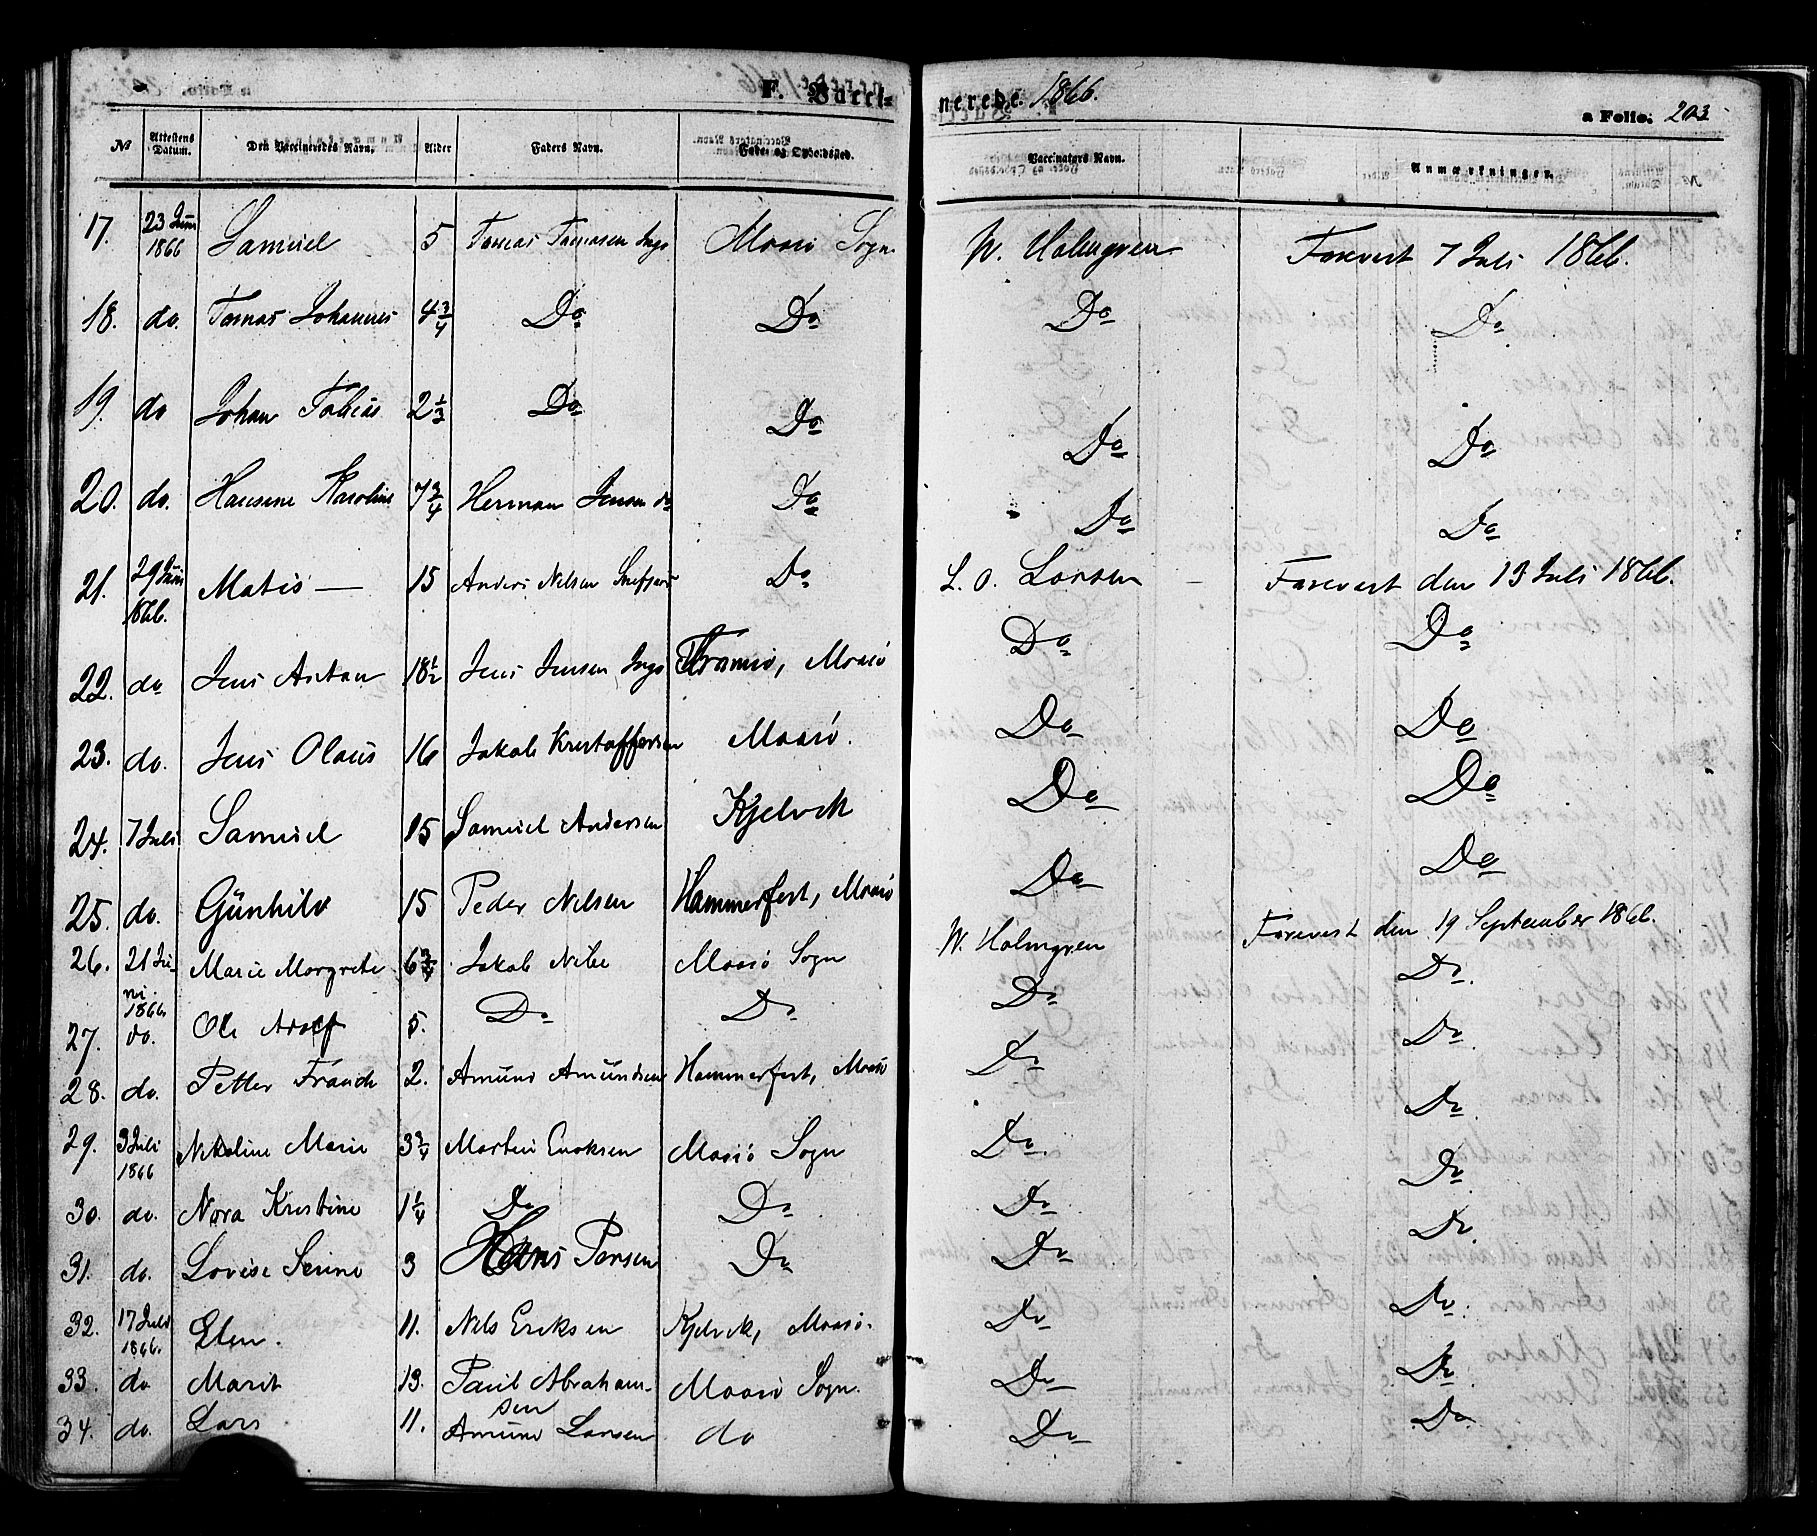 F. Vacci-
nerede. 1866.
a Folio. 203
No Attestens Datum. Den Vaccineredes Navn. Alder Faders Navn. Føde- og Opholdssted. Vaccinators Navn. Anmærkninger.
17. 23 Juni 1866 Samuel 5 Tomas Tomasen Inga Maasö Sogn W. Holmgren Forevist 7 Juli 1866.
18. do. Tomas Johannes 4 3/4 Do Do Do Do
19. do Johan Tobias 2 1/3 Do Do Do Do
20. do. Hansine Karoline 7 3/4 Herman Jensen do Do Do Do
21. 29 Juni 1866. Matis — 15 Anders Nilsen Do L. O. Larsen Forevist den 13 Juli 1866.
22. do Jens Anton 18 1/2 Jens Jensen Inga Tromsö, Maasö Do Do
23. do. Jens Olaus 16 Jakob Kristoffersen Maasö. Do Do
24. 7 Juli Samuel 15 Samuel Andersen Kjelvik Do Do
25. do. Günhild 15 Peder Nilsen Hammerfest, Maasö Do Do
26. 21 Juni 1866. Marie Margrete 6 3/4 Jakob Maasö Sogn W. Holmgren Forevist den 19 September 1866.
27. do. Ole Adolf 5. Do Do Do Do.
28. do. Petter Frandt 2. Amünd Amündsen Hammerfest, Maasö Do Do.
29. 3 Juli 1866 Nikoline Marie 3 3/4 Martin Eriksen Maasö Sogn Do Do
30. do. Nora Kristine 1 1/4 Do Do Do Do
31. do. Lovise Serine 3 Hans Persen Do Do Do
32. 17 Juli 1866. Elen. 11. Nils Eriksen Kjelvik, Maasö. Do Do.
33. do Marit 13. Paul Abraham-
sen Maasö Sogn. Do Do
34. do. Lars 11. Amünd Larsen do Do Do